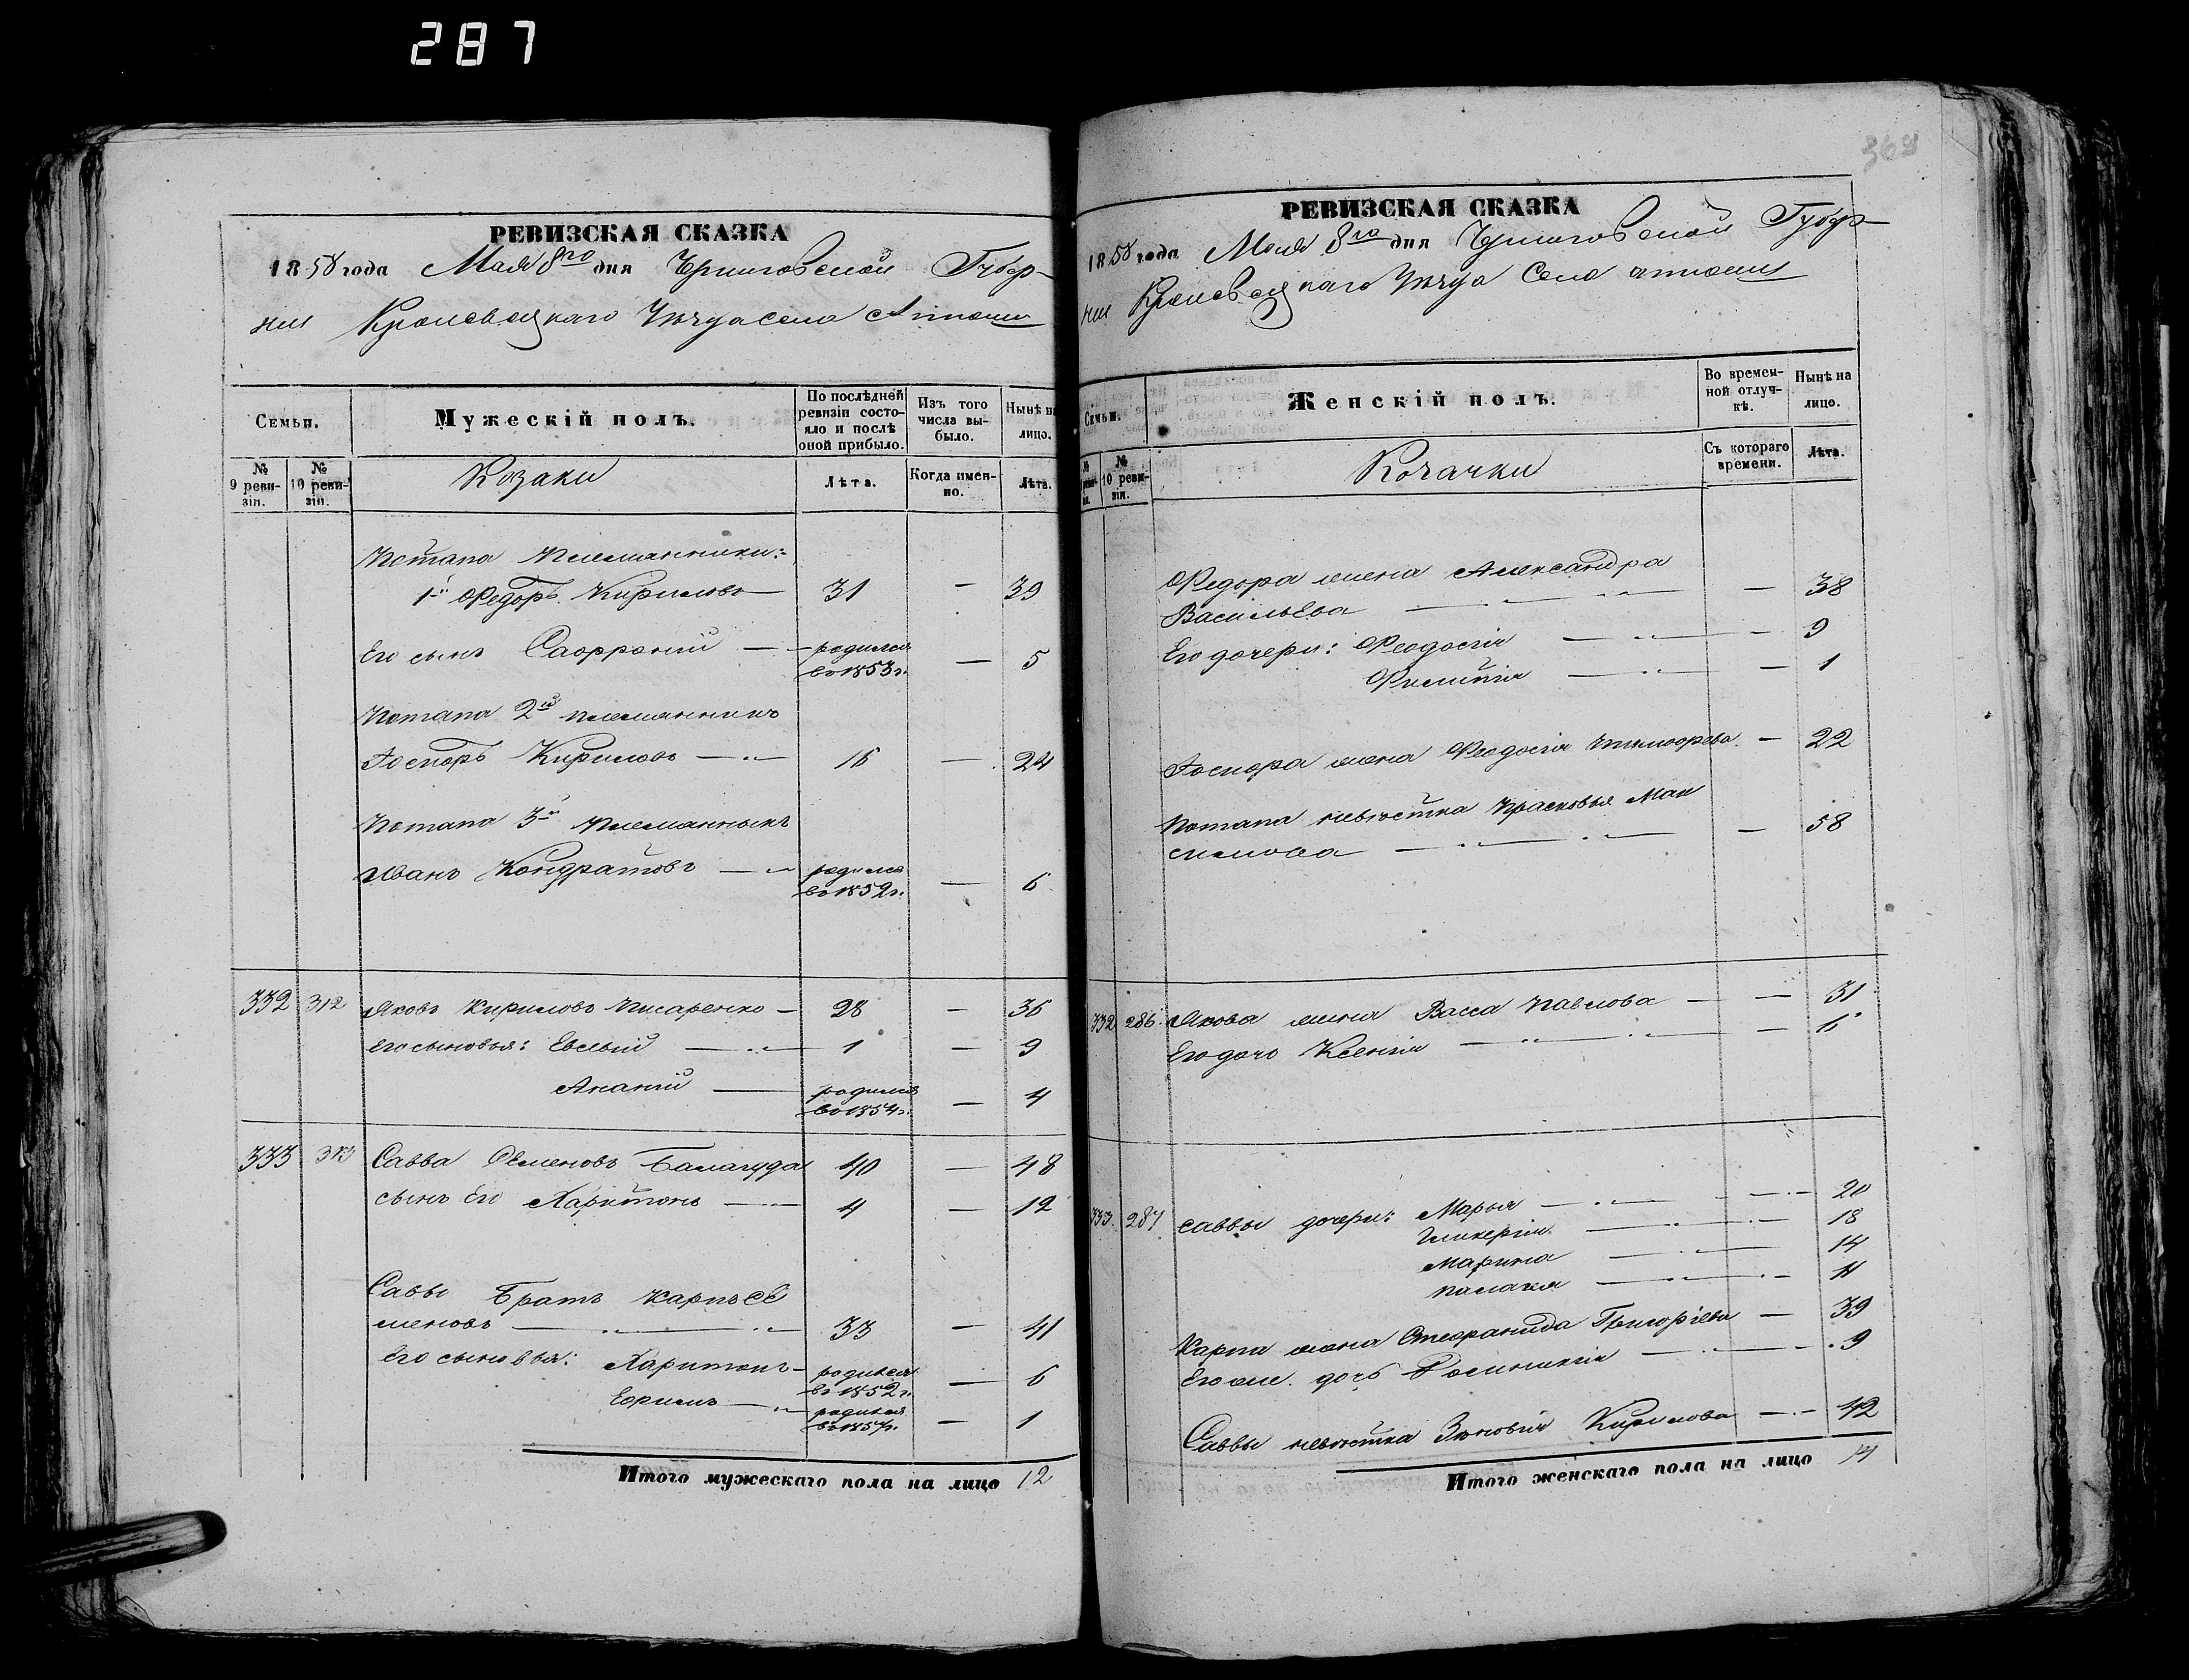 287
369
РЕВИЗСКАЯ СКАЗКА
1858 года Мая 8го дня Черниговской Губер-
нии Кролевецкаго Уезда Села
Семьи.
Мужескій полъ.
По послѣдней ревизіи состо-
яло и послѣ оной прибыло.
Изъ того числа вы-
было.
Нынѣ на лицо.
№ 9 реви-
зіи.
№ 10 реви-
зіи.
Козаки
Лѣта.
Когда имен-
но.
Лѣта.
Потапа Племянники:
1й Федоръ Кириловъ — 31 — 39
Его сынъ Саофроній — родился во 1853г. — 5
Потапа 2й племянникъ
Іосифъ Кириловъ — 16 — 24
Потапа 3й Племянникъ
Иванъ Кондратовъ — родился во 1852г. — 6
332 312 Яковъ Кириловъ Писаренко — 28 — 36
Его сыновья: Евсевій — 1 — 9
Ананій — родился во 1854г. — 4
333 313 Савва Семеновъ Балагуда 40 — 48
сынъ Его Харитонъ — 4 — 12
Саввы Братъ Карпъ Се
меновъ — 33 — 41
Его сыновья: Харитонъ — родился во 1852г. — 6
Ефимъ — родился во 1857г. — 1
Итого мужескаго пола на лицо 12
РЕВИЗСКАЯ СКАЗКА
1858 года Мая 8го дня Черниговской Губер-
нии Кролевецкаго Уезда Села
Семьи.
Женскій полъ.
Во времен-
ной отлуч-
кѣ.
Нынѣ на лицо.
№ 10 реви-
зіи.
Козачки
Съ котораго времени.
Лѣта.
Федора жена Александра
Васильева — — 38
Его дочери: Феодосія — — 9
— — 1
жена Феодосія — 22
Потапа невѣстка Прасковья Мак
симова — — 58
332 286. Якова жена Васса Павлова — — 31
Его дочь Ксенія — — 6
333. 287 Саввы дочери: Марья — — 20
Гликерія — — 18
Марина — — 14
Палагея — — 11
Карпа жена Стефанида Григорієва — 39
Его дочь — 9
Саввы невѣстка Зиновія Кирилова — 42
Итого женскаго пола на лицо 14